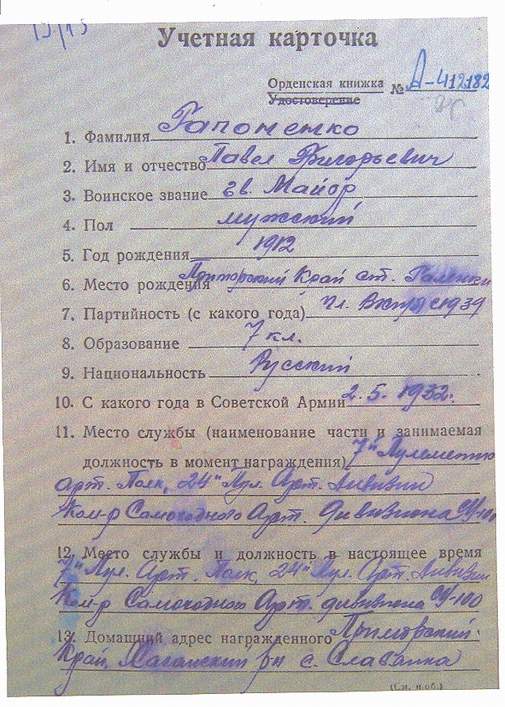 15/15
Учетная карточка
Орденская книжка
Удостоверение
№ А-412182
1. Фамилия Гапоненко
2. Имя и отчество Павел Григорьевич
3. Воинское звание гв. Майор
4. Пол мужский
5. Год рождения 1912
6. Место рождения Приморский Край ст. Галенки
7. Партийность (с какого года) Чл. ВКП(б) с 1939
8. Образование 7 кл.
9. Национальность Русский
10. С какого года в Советской Армии 2.5.1932.
11. Место службы (наименование части и занимаемая
должность в момент награждения) 7й Пулеметно
Арт. Полк, 24й Пул. Арт. Дивизии
Ком-р Самоходного Арт. дивизиона СУ-100
12. Место службы и должность в настоящее время
7й Пул. Арт. Полк, 24й Пул. Арт. Дивизии
Ком-р Самоходного Арт. дивизиона СУ-100
13. Домашний адрес награжденного Приморский
Край, Хасанский р-н с. Славянка